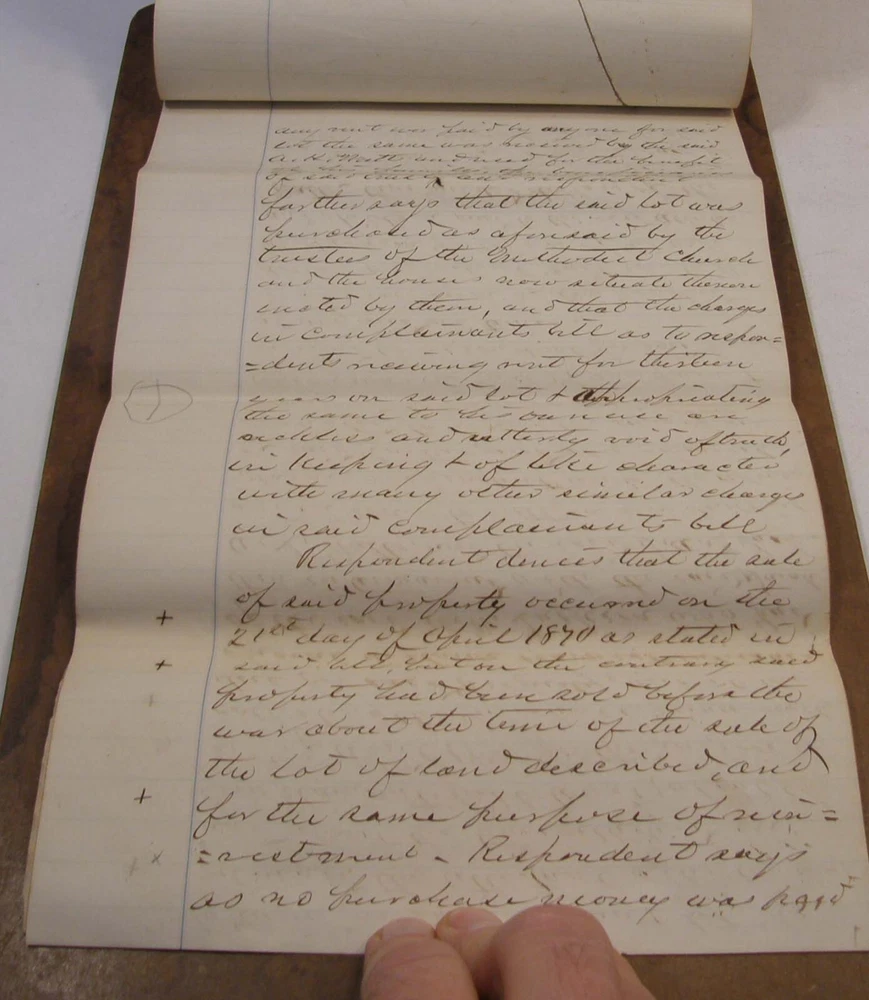 any rent was paid by anyone for said
lot the same was received by the said
A. H. and used for the benefit
of said respondent
further says that the said lot was
purchased as aforesaid by the
trustees of the Methodist Church
and the house now situate thereon
erected by them, and that the charges
in complainants bill as to respon=
=dents receiving rent for thirteen
years on said lot & appropriating
the same to his own use are
reckless and utterly void of truth,
in keeping & of like character
with many other similar charges
in said complainants bill
Respondent denies that the sale
of said property occurred on the
21st day of April 1870 as stated in
said bill, but on the contrary said
property had been sold before the
war about the time of the sale of
the lot of land described, and
for the same purpose of rein=
=vestment - Respondent says
as no purchase money was paid